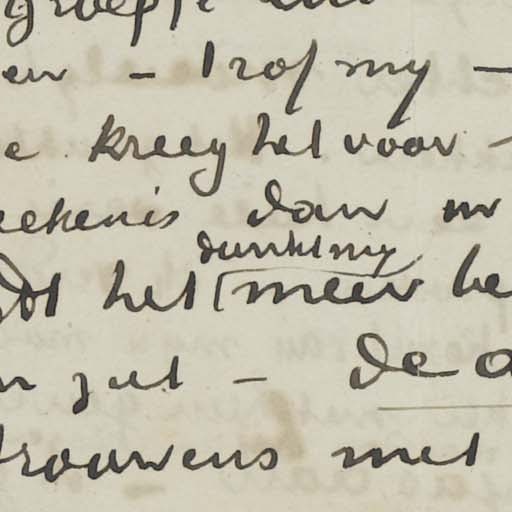 groepje
en - Trof my -
e kreeg het voor -
eekenis dan
dunkt my
dt het meer be
n zet - de
trouwens met